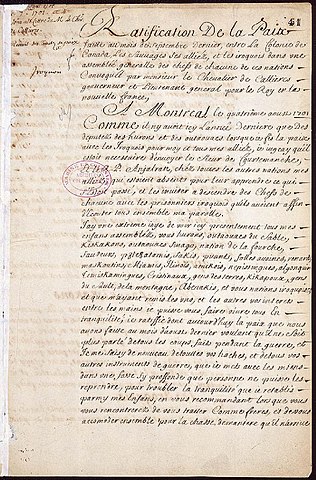 41
Ratification De la Paix
faite au mois de septembre dernier, entre la Colonie de
Canada, Les Sauvages ses alliéz, et les iroquois dans une
assemblée generalle des chefs de chacune de ces nations
Convoqueé par monsieur le Chevalier de Callieres
gouverneur et Lieutenant general pour le Roy en la
nouvelle france,
A Montreal le quatriéme aoust 1701
Comme il ny auoit icy l'année Derniere que Des
deputez des hurons et des outaouacs lorsque je fis la paix
avec les Iroquois pour moy et tous mes alliéz, ie jugeay qu'il
estoit necessaire d'enuoyer le sieur de Courtemanche,
et le R. P. Anjalran, chez toutes les autres nations mes
alliéz qui estoient absents pour leur aprendre ce qui
s'estoit passé, et les inuiter a descendre des Chefs de
chacune auec les prisonniers iroquois qu'ils auoient affin
d'écouter tous ensemble ma parolle.
J'ay une extreme ioye de voir icy presentement tous mes
enfans assemblez, vous hurons, outaouacs du Sable,
Kiskakons, outaouacs Sinago, nation de la fourche,
Sauteurs, p8te8atamis, Sakis, puants, folles auoines, renards,
maskoutins, Miamis, Ilinois, amikois, nepissingues, algonquins,
Temiskamingues, Cristinaux, gens des terres, Kikapoux, gens
du Sault, de la montagne, Abenakis, et vous nations iroquoises
et que m'ayant remis les uns, et les autres vos interests
entre les mains ie puisse vous faire viure tous en
tranquilité; ie ratiffie donc aujourd'huy la paix que nous
auons faite au mois d'aoust dernier voulant qu'il ne soit
plus parlé de tous les coups faits pendant la guerre, et
Je me saisy de nouveau de toutes vos haches, et de tous vos
autres instruments de guerre, que ie mets avec les miens
dans une fosse sy profonde que personne ne puisse les
reprendre, pour troubler la tranquilité que ie retablis
parmy mes Enfans, en vous recommandant lorsque vous
vous rencontrerez de vous traiter Comme freres, et de vous
accomoder ensemble pour la chasse, de maniere qu'il n'arriue